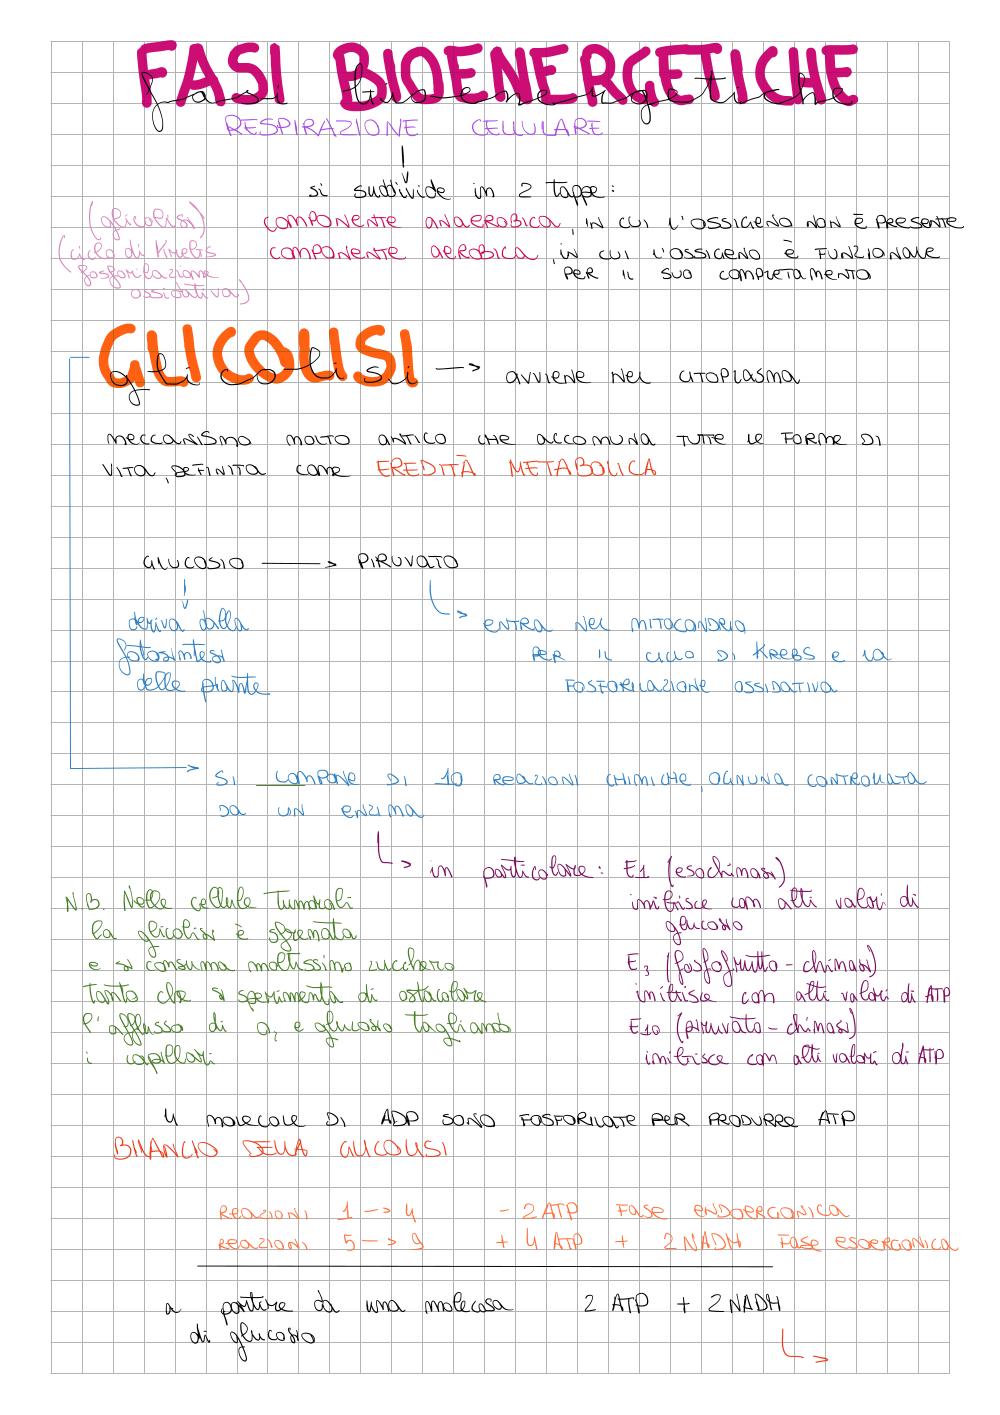 FASI BIOENERGETICHE
fasi bioenergetiche
RESPIRAZIONE CELLULARE
si suddivide in 2 tappe:
(glicolisi) COMPONENTE ANAEROBICA, IN CUI L'OSSIGENO NON È PRESENTE
(ciclo di Krebs COMPONENTE AEROBICA, IN CUI L'OSSIGENO È FUNZIONALE
fosforilazione PER IL SUO COMPLETAMENTO
ossidativa)
GLICOLISI
glicolisi -> AVVIENE NEL CITOPLASMA
MECCANISMO MOLTO ANTICO CHE ACCOMUNA TUTTE LE FORME DI
VITA, DEFINITA COME EREDITÀ METABOLICA
GLUCOSIO -> PIRUVATO
deriva dalla
fotosintesi
delle piante
ENTRA NEL MITOCONDRIO
PER IL CICLO DI KREBS E LA
FOSFORILAZIONE OSSIDATIVA
SI COMPONE DI 10 REAZIONI CHIMICHE, OGNUNA CONTROLLATA
DA UN ENZIMA
in particolare: E1 (esochinasi)
inibisce con alti valori di
glucosio
E3 (fosfofrutto-chinasi)
inibisce con alti valori di ATP
E10 (piruvato-chinasi)
inibisce con alti valori di ATP
N.B. Nelle cellule Tumorali
la glicolisi è sfrenata
e si consuma moltissimo zucchero
tanto che si sperimenta di ostacolare
l'afflusso di O2 e glucosio tagliando
i capillari
4 MOLECOLE DI ADP SONO FOSFORILATE PER PRODURRE ATP
BILANCIO DELLA GLICOLISI
REAZIONI 1 -> 4 - 2 ATP FASE ENDOERGONICA
REAZIONI 5 -> 9 + 4 ATP + 2 NADH FASE ESOERGONICA
a partire da una molecosa 2 ATP + 2 NADH
di glucosio